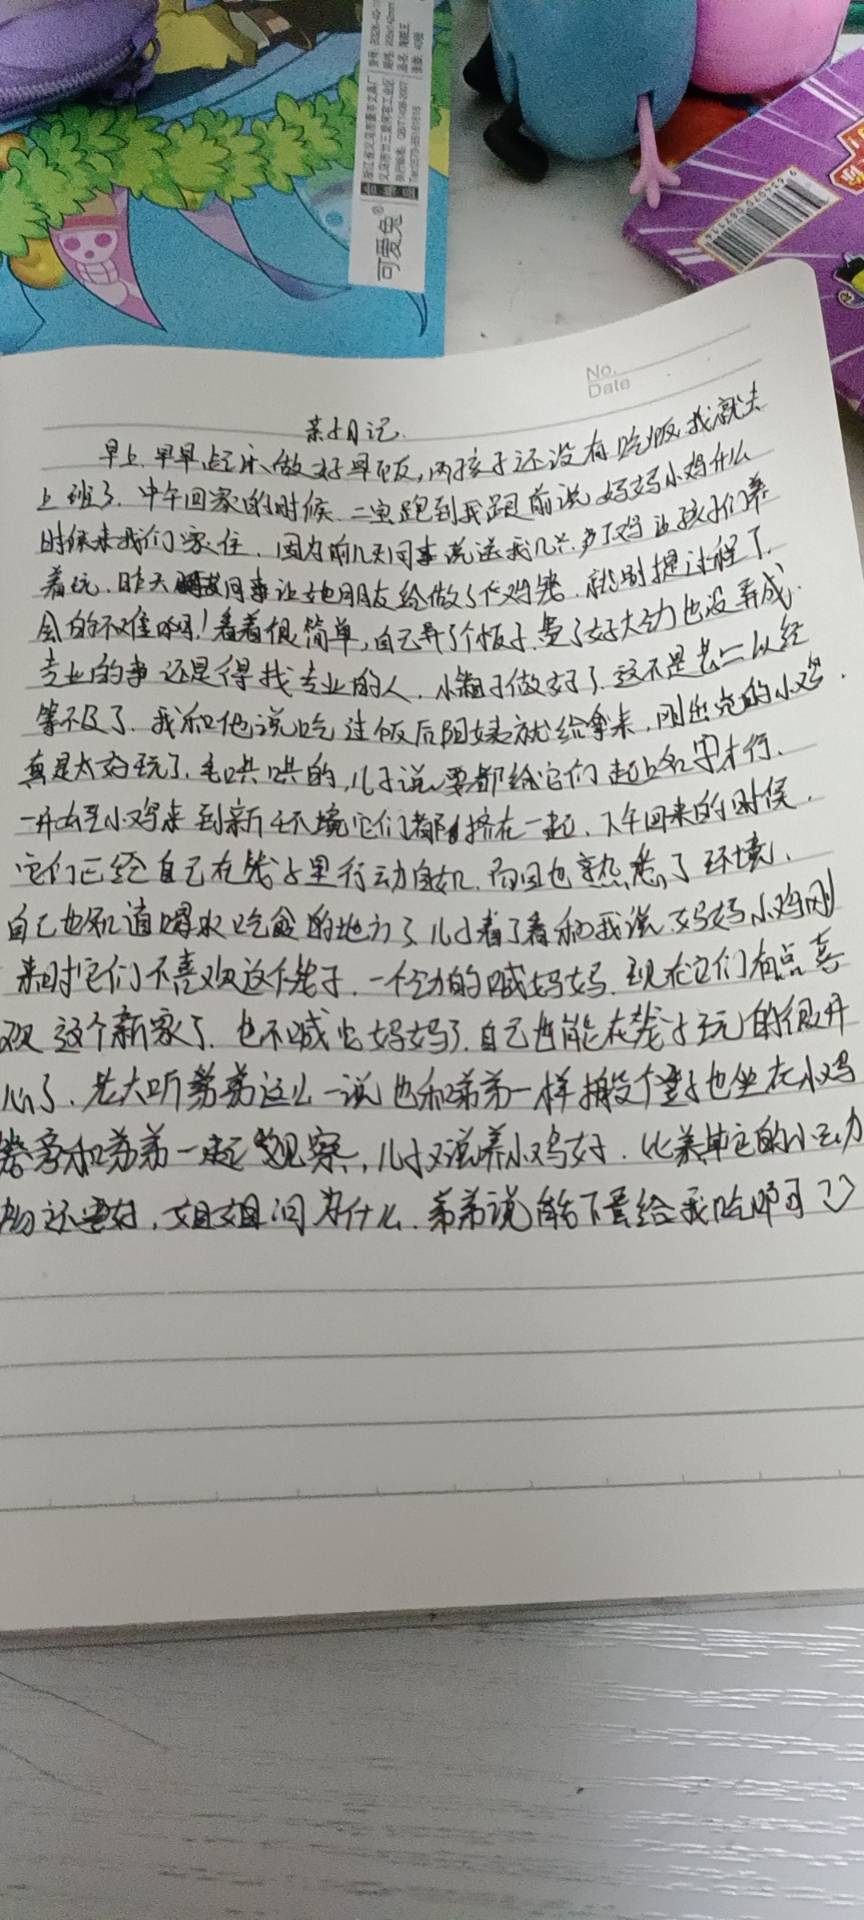 可爱兔®
No.
Date
亲子日记.
早上.早早起床做好早饭,两孩子还没有吃饭.我就去
上班了.中午回家的时候.二宝跑到我跟前说妈妈小鸡什么
时候来我们家住.因为前几天同事说送我几只.芦丁鸡让孩子们养
着玩.昨天同事让她朋友给做了个鸡笼.就别提过程了.
会的不难啊!看着很简单,自己弄了个板子.费了好大劲也没弄成.
专业的事还是得找专业的人.小箱子做好了.这不是老二以经
等不及了.我和他说吃过饭后阿姨就给拿来.刚出壳的小鸡.
真是太好玩了.毛哄哄的,儿子说要都给它们起上名字才行.
一开始至小鸡来到新环境它们都挤在一起.下午回来的时候.
它们已经自己在笼子里行动自如.而且也熟悉了环境.
自己也知道喝水吃食的地方了儿子看了看和我说妈妈小鸡刚
来时它们不喜欢这个笼子.一个劲的喊妈妈.现在它们有点喜
欢这个新家了.也不喊它妈妈了.自己也能在笼子玩的很开
心了.老大听弟弟这么一说也和弟弟一样搬个登子也坐在小鸡
笼旁和弟弟一起观察,儿子又说养小鸡好.比养其它的小动
物还要好,姐姐问为什么.弟弟说能下蛋给我吃啊可